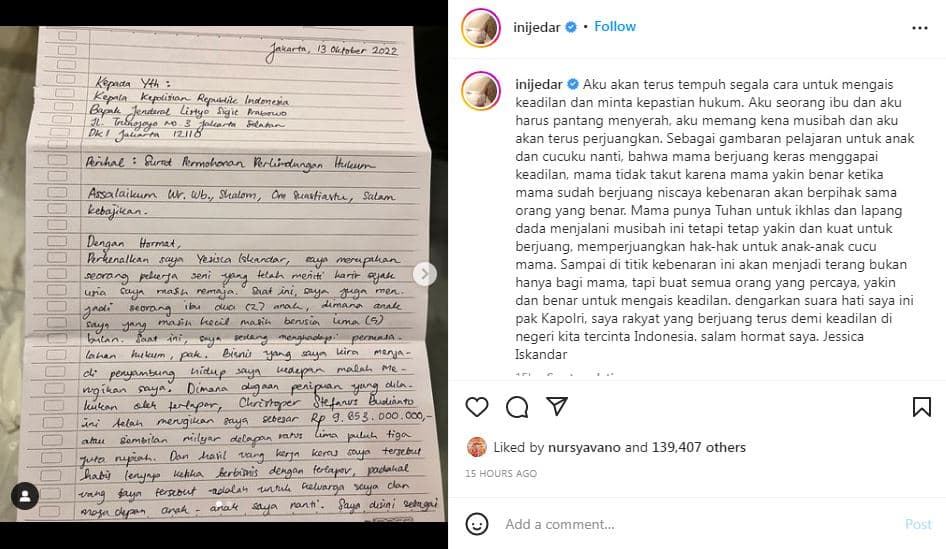 Jakarta, 13 Oktober 2022
Kepada Yth :
Kepala Kepolisian Republik Indonesia
Bapak Jenderal Listyo Sigit Prabowo
Jl. Trunojoyo no. 3 Jakarta Selatan
DKI Jakarta 12110
Perihal : Surat Permohonan Perlindungan Hukum
Assalaikum Wr. Wb., Shalom, Om Suastiastu, Salam
kebajikan.
Dengan Hormat,
Perkenalkan saya Yesica Iskandar, saya merupakan
seorang pekerja seni yang telah meniti karir sejak
usia saya masih remaja. Saat ini, saya juga men-
jadi seorang ibu dua (2) anak, dimana anak
saya yang masih kecil masih berusia lima (5)
bulan. Saat ini, saya sedang menghadapi permasa-
lahan hukum, pak. Bisnis yang saya kira menja-
di penyambung hidup saya kedepan malah me-
rugikan saya. Dimana dugaan penipuan yang dila-
kukan oleh terlapor, Christoper Stefanus Budianto
ini telah merugikan saya sebesar Rp 9.853.000.000,-
atau sembilan milyar delapan ratus lima puluh tiga
juta rupiah. Dan hasil uang kerja keras saya tersebut
habis lenyap ketika berbisnis dengan terlapor, padahal
uang saya tersebut adalah untuk keluarga saya dan
masa depan anak - anak saya nanti. Saya disini sebagai
inijedar • Follow
inijedar Aku akan terus tempuh segala cara untuk mengais
keadilan dan minta kepastian hukum. Aku seorang ibu dan aku
harus pantang menyerah, aku memang kena musibah dan aku
akan terus perjuangkan. Sebagai gambaran pelajaran untuk anak
dan cucuku nanti, bahwa mama berjuang keras menggapai
keadilan, mama tidak takut karena mama yakin benar ketika
mama sudah berjuang niscaya kebenaran akan berpihak sama
orang yang benar. Mama punya Tuhan untuk ikhlas dan lapang
dada menjalani musibah ini tetapi tetap yakin dan kuat untuk
berjuang, memperjuangkan hak-hak untuk anak-anak cucu
mama. Sampai di titik kebenaran ini akan menjadi terang bukan
hanya bagi mama, tapi buat semua orang yang percaya, yakin
dan benar untuk mengais keadilan. dengarkan suara hati saya ini
pak Kapolri, saya rakyat yang berjuang terus demi keadilan di
negeri kita tercinta Indonesia. salam hormat saya. Jessica
Iskandar
Liked by nursyavano and 139,407 others
15 HOURS AGO
Add a comment...
Post